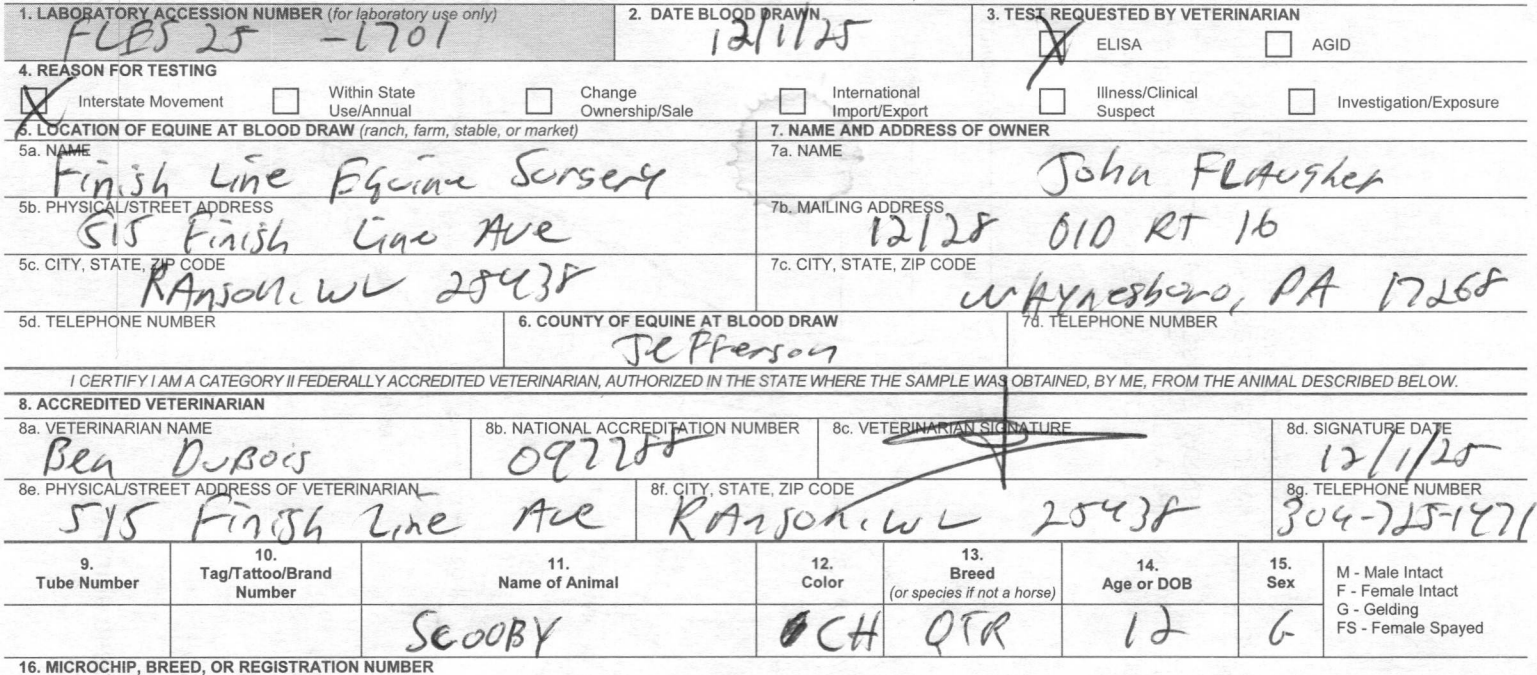 1. LABORATORY ACCESSION NUMBER (for laboratory use only)
FLES 25 -1701
2. DATE BLOOD DRAWN
12/1/25
3. TEST REQUESTED BY VETERINARIAN
X ELISA AGID
4. REASON FOR TESTING
X Interstate Movement Within State Use/Annual Change Ownership/Sale International Import/Export Illness/Clinical Suspect Investigation/Exposure
5. LOCATION OF EQUINE AT BLOOD DRAW (ranch, farm, stable, or market)
5a. NAME
Finish Line Equine Surgery
5b. PHYSICAL/STREET ADDRESS
515 Finish Line Ave
5c. CITY, STATE, ZIP CODE
RAnson, WV 25438
5d. TELEPHONE NUMBER
6. COUNTY OF EQUINE AT BLOOD DRAW
Jefferson
7. NAME AND ADDRESS OF OWNER
7a. NAME
John FLAugher
7b. MAILING ADDRESS
12128 OlD RT 16
7c. CITY, STATE, ZIP CODE
WAynesboro, PA 17268
7d. TELEPHONE NUMBER
I CERTIFY I AM A CATEGORY II FEDERALLY ACCREDITED VETERINARIAN, AUTHORIZED IN THE STATE WHERE THE SAMPLE WAS OBTAINED, BY ME, FROM THE ANIMAL DESCRIBED BELOW.
8. ACCREDITED VETERINARIAN
8a. VETERINARIAN NAME
Ben DuBois
8b. NATIONAL ACCREDITATION NUMBER
097788
8c. VETERINARIAN SIGNATURE
8d. SIGNATURE DATE
12/1/25
8e. PHYSICAL/STREET ADDRESS OF VETERINARIAN
515 Finish Line Ave
8f. CITY, STATE, ZIP CODE
RAnson, WV 25438
8g. TELEPHONE NUMBER
304-725-1471
9. Tube Number
10. Tag/Tattoo/Brand Number
11. Name of Animal
12. Color
13. Breed (or species if not a horse)
14. Age or DOB
15. Sex
M - Male Intact
F - Female Intact
G - Gelding
FS - Female Spayed
SCOOBY CH QTR 12 G
16. MICROCHIP, BREED, OR REGISTRATION NUMBER